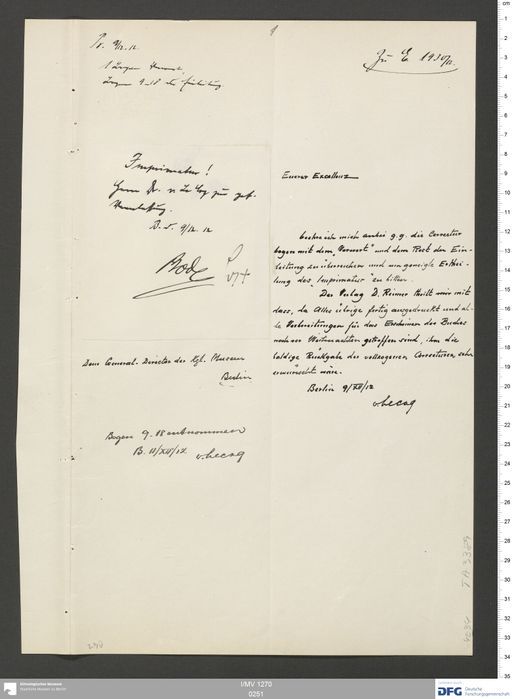 Pr. 9/12. 12
Zu E. 1930/12.
Imprimatur!
Herrn Dr. v. Le Coq zur gef.
B. d. 9/12. 12
Bode
Euerer Excellenz
beehre ich mich anbei g. g. die Correctur
bogen mit dem „Vorwort" und dem Rest der Ein-
leitung zu überreichen und um geneigte Erthei-
lung des „Imprimatur" zu bitten.
Der Verlag D. Reimer theilt mir mit
dass, da Alles übrige fertig ausgedruckt und al-
le Vorbereitungen für das Erscheinen des Buches
noch vor Weihnachten getroffen sind, ihm die
baldige Rückgabe der vollzogenen Correcturen sehr
erwünscht wäre.
Berlin 9/XII/12
v. Lecoq
Dem General-Director der Kgl. Museen
Berlin
Bogen 9-18 entnommen
B. 11/XII/12 v. Lecoq
TA 3389
I/MV 1270
0251
Ethnologisches Museum
Staatliche Museen zu Berlin
DFG Deutsche
Forschungsgemeinschaft